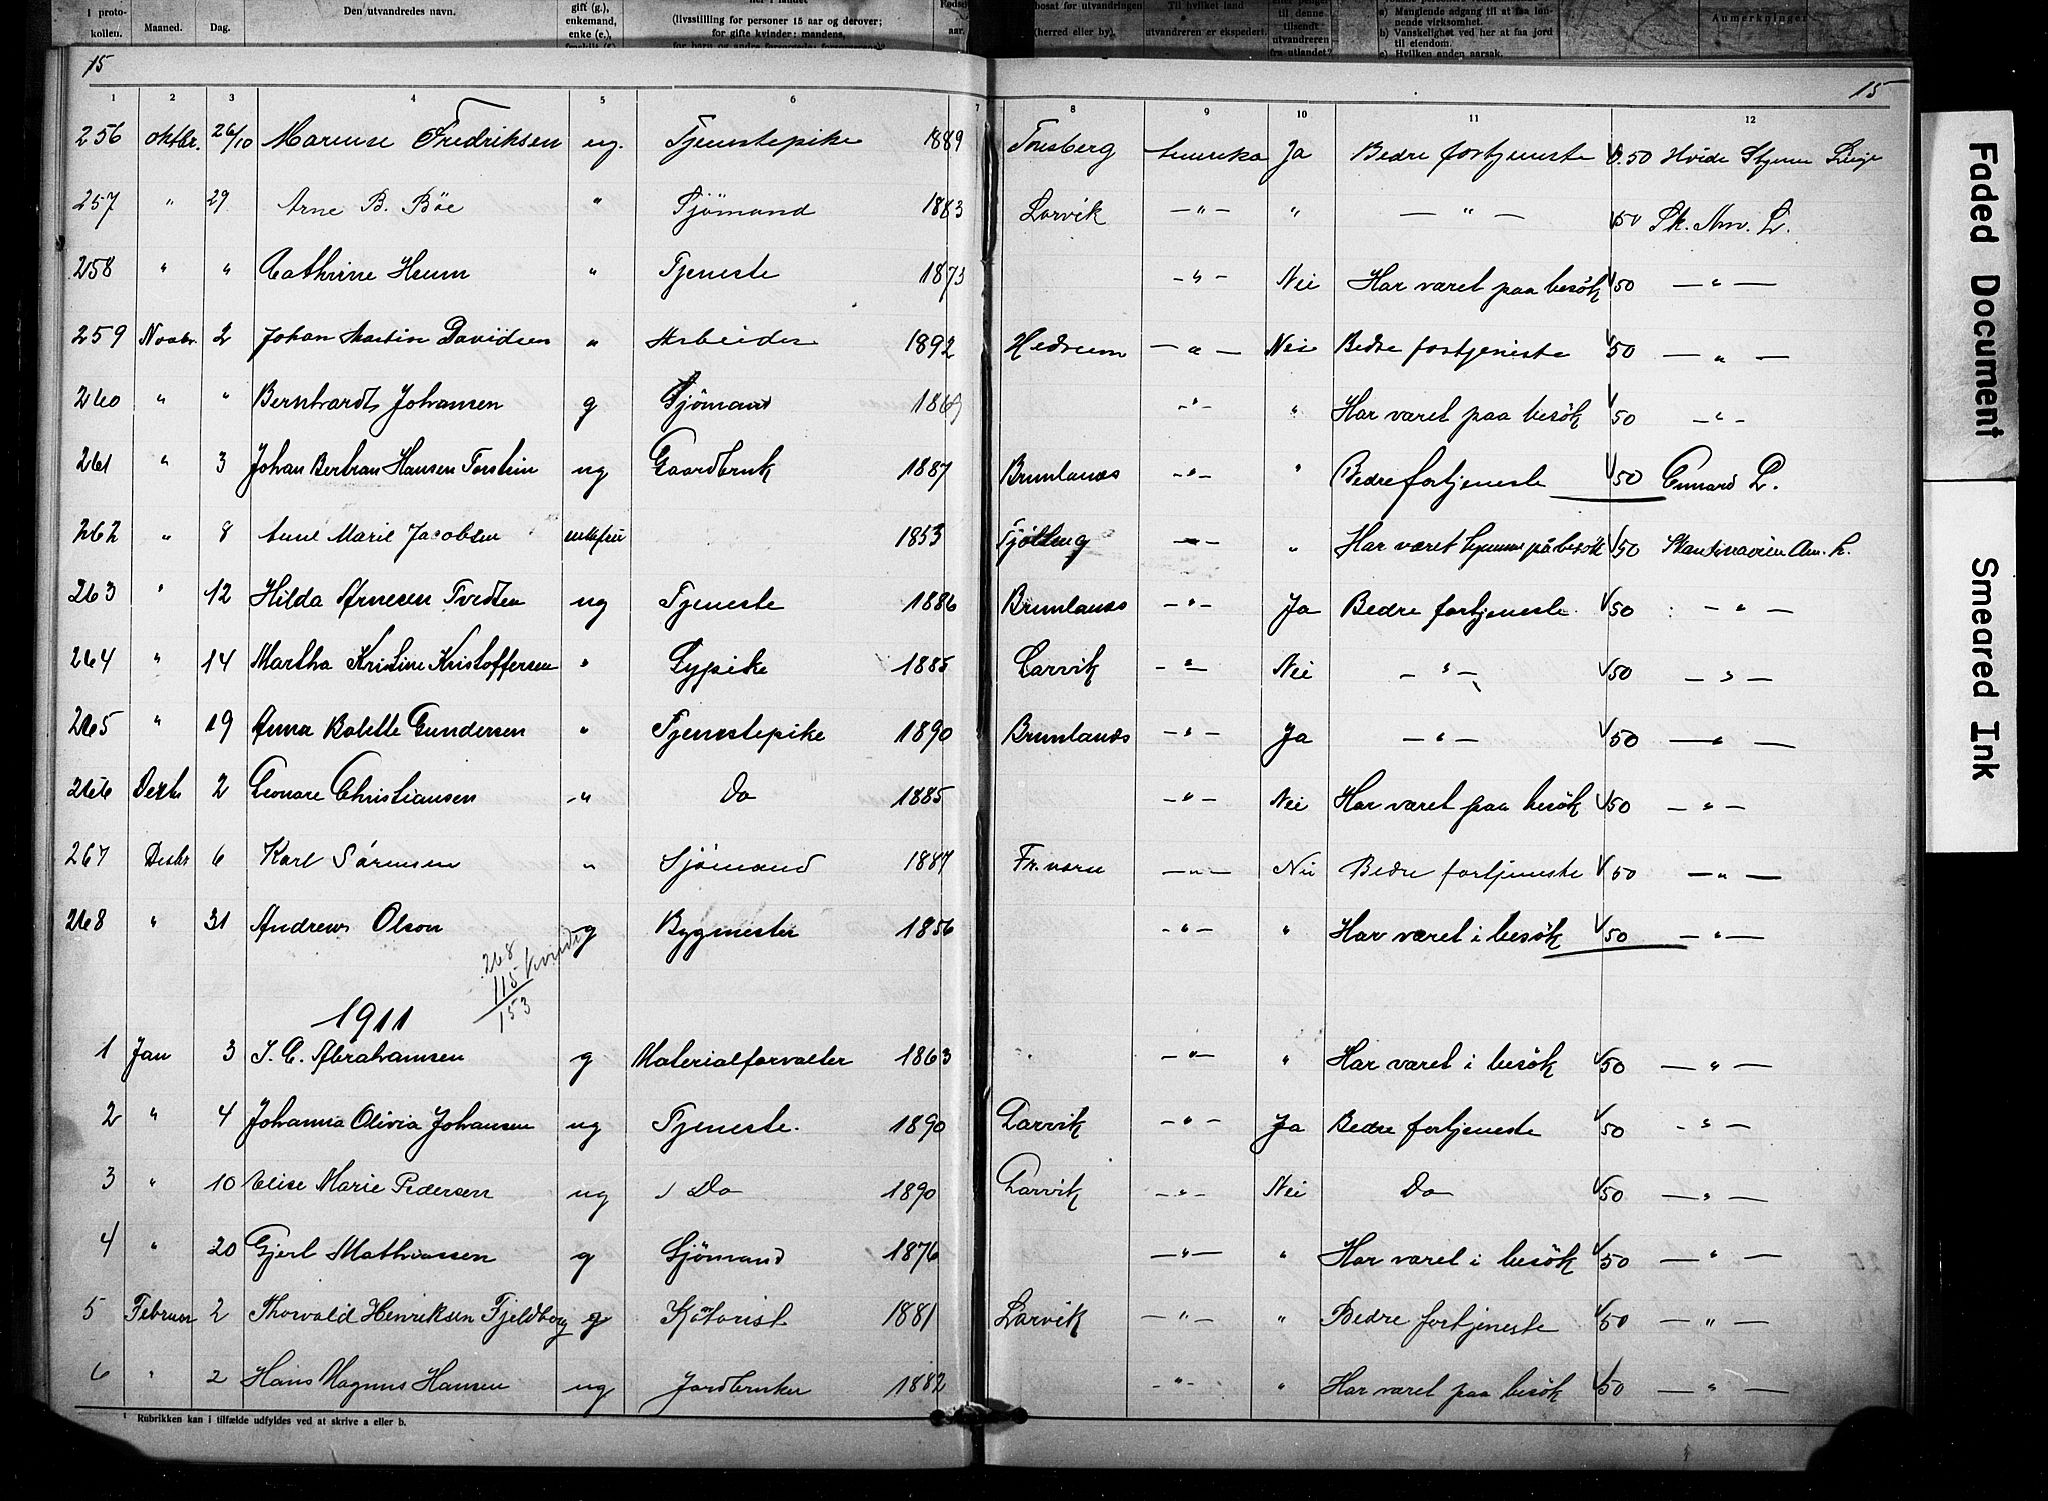 i proto-
kollen.
Maaned.
Dag.
Den utvandredes navn.
gift (g.),
enkemand,
enke (e.),
(livsstilling for personer 15 aar og derover;
for gifte kvinder: mandens,
aar.
bosat før utvandringen
(herred eller by).
Til hvilket land
utvandreren er ekspedert.
til denne
tilsendt
utvandreren
fra utlandet?
a) Manglende adgang til at faa løn-
nende virksomhet.
b) Vanskelighet ved her at faa jord
til eiendom.
c) Hvilken anden aarsak.
Anmerkninger
15 15
1 2 3 4 5 6 7 8 9 10 11 12
256 Oktbr. 26/10 Fredriksen ug. Tjenstepike 1889 Tønsberg Amerika Ja Bedre fortjeneste 50 Hvide Stjerne Linje
257 " 29 Arne B. Böe " Sjömand 1883 Larvik — " — " — " — 50 Sk. Am. L.
258 " " Cathrine Heum " Tjeneste 1873 — " — Nei Har været paa besök 50 — " —
259 Novbr. 2 Johan Martin Davidsen " Arbeider 1892 Hedrum — " — Nei Bedre fortjeneste 50 — " —
260 " " Bernhardt Johansen g Sjömand - " - " Har været paa besök 50 — " —
261 " 3 Johan Bertran Hansen ug Gaardbruk 1887 Brunlanes - " - " Bedre fortjeneste 50 Cunard L.
262 " 8 Anne Marie Jacobsen enkefru 1853 Tjölling — " — " Har været hjemme på besök 50 Skandinavien Am. L.
263 " 12 Hilda Arnesen Tvedten ug Tjeneste 1886 Brunlanes — " — Ja Bedre fortjeneste 50 — " —
264 " 14 Martha Kristine Kristoffersen " Sypike 1885 Larvik — " — Nei — " — 50 — " —
265 " 19 Anna Bolette Gundersen " Tjenestepike 1890 Brunlanes — " — Ja — " — 50 — " —
266 2 Christiansen - " Do 1885 — " — Nei Har været paa besök 50 — " —
267 Desbr 6 Karl Sörensen " Sjömand 1887 Fr.værn — " — Nei Bedre fortjeneste 50 — " —
268 " 31 Andrew Olson g Bygmester 1856 — " — " Har været i besök 50 — " —
268
115 kvinder
153
1911
1 Jan 3 Abrahamsen g Materialforvalter 1863 " — " — " Har været i besök 50 — " —
2 " 4 Johanna Olivia Johansen ug Tjeneste. 1890 Larvik — " — Ja Bedre fortjeneste 50 — " —
3 " 10 Elise Marie Pedersen ug Do 1890 Larvik — " — Nei Do 50 — " —
4 " 20 Gjert Mathiassen g Sjömand 1876 — " — " Har været i besök 50 — " —
5 Februar 2 Thorvald Henriksen Fjeldberg g 1881 Larvik — " — " Bedre fortjeneste 50 — " —
6 " 2 Hans Magnus Hansen ug Jordbruker 1882 — " — " Har været paa besök 50 — " —
¹ Rubrikken kan i tilfælde utfyldes ved at skrive a eller b.
Faded Document
Smeared Ink